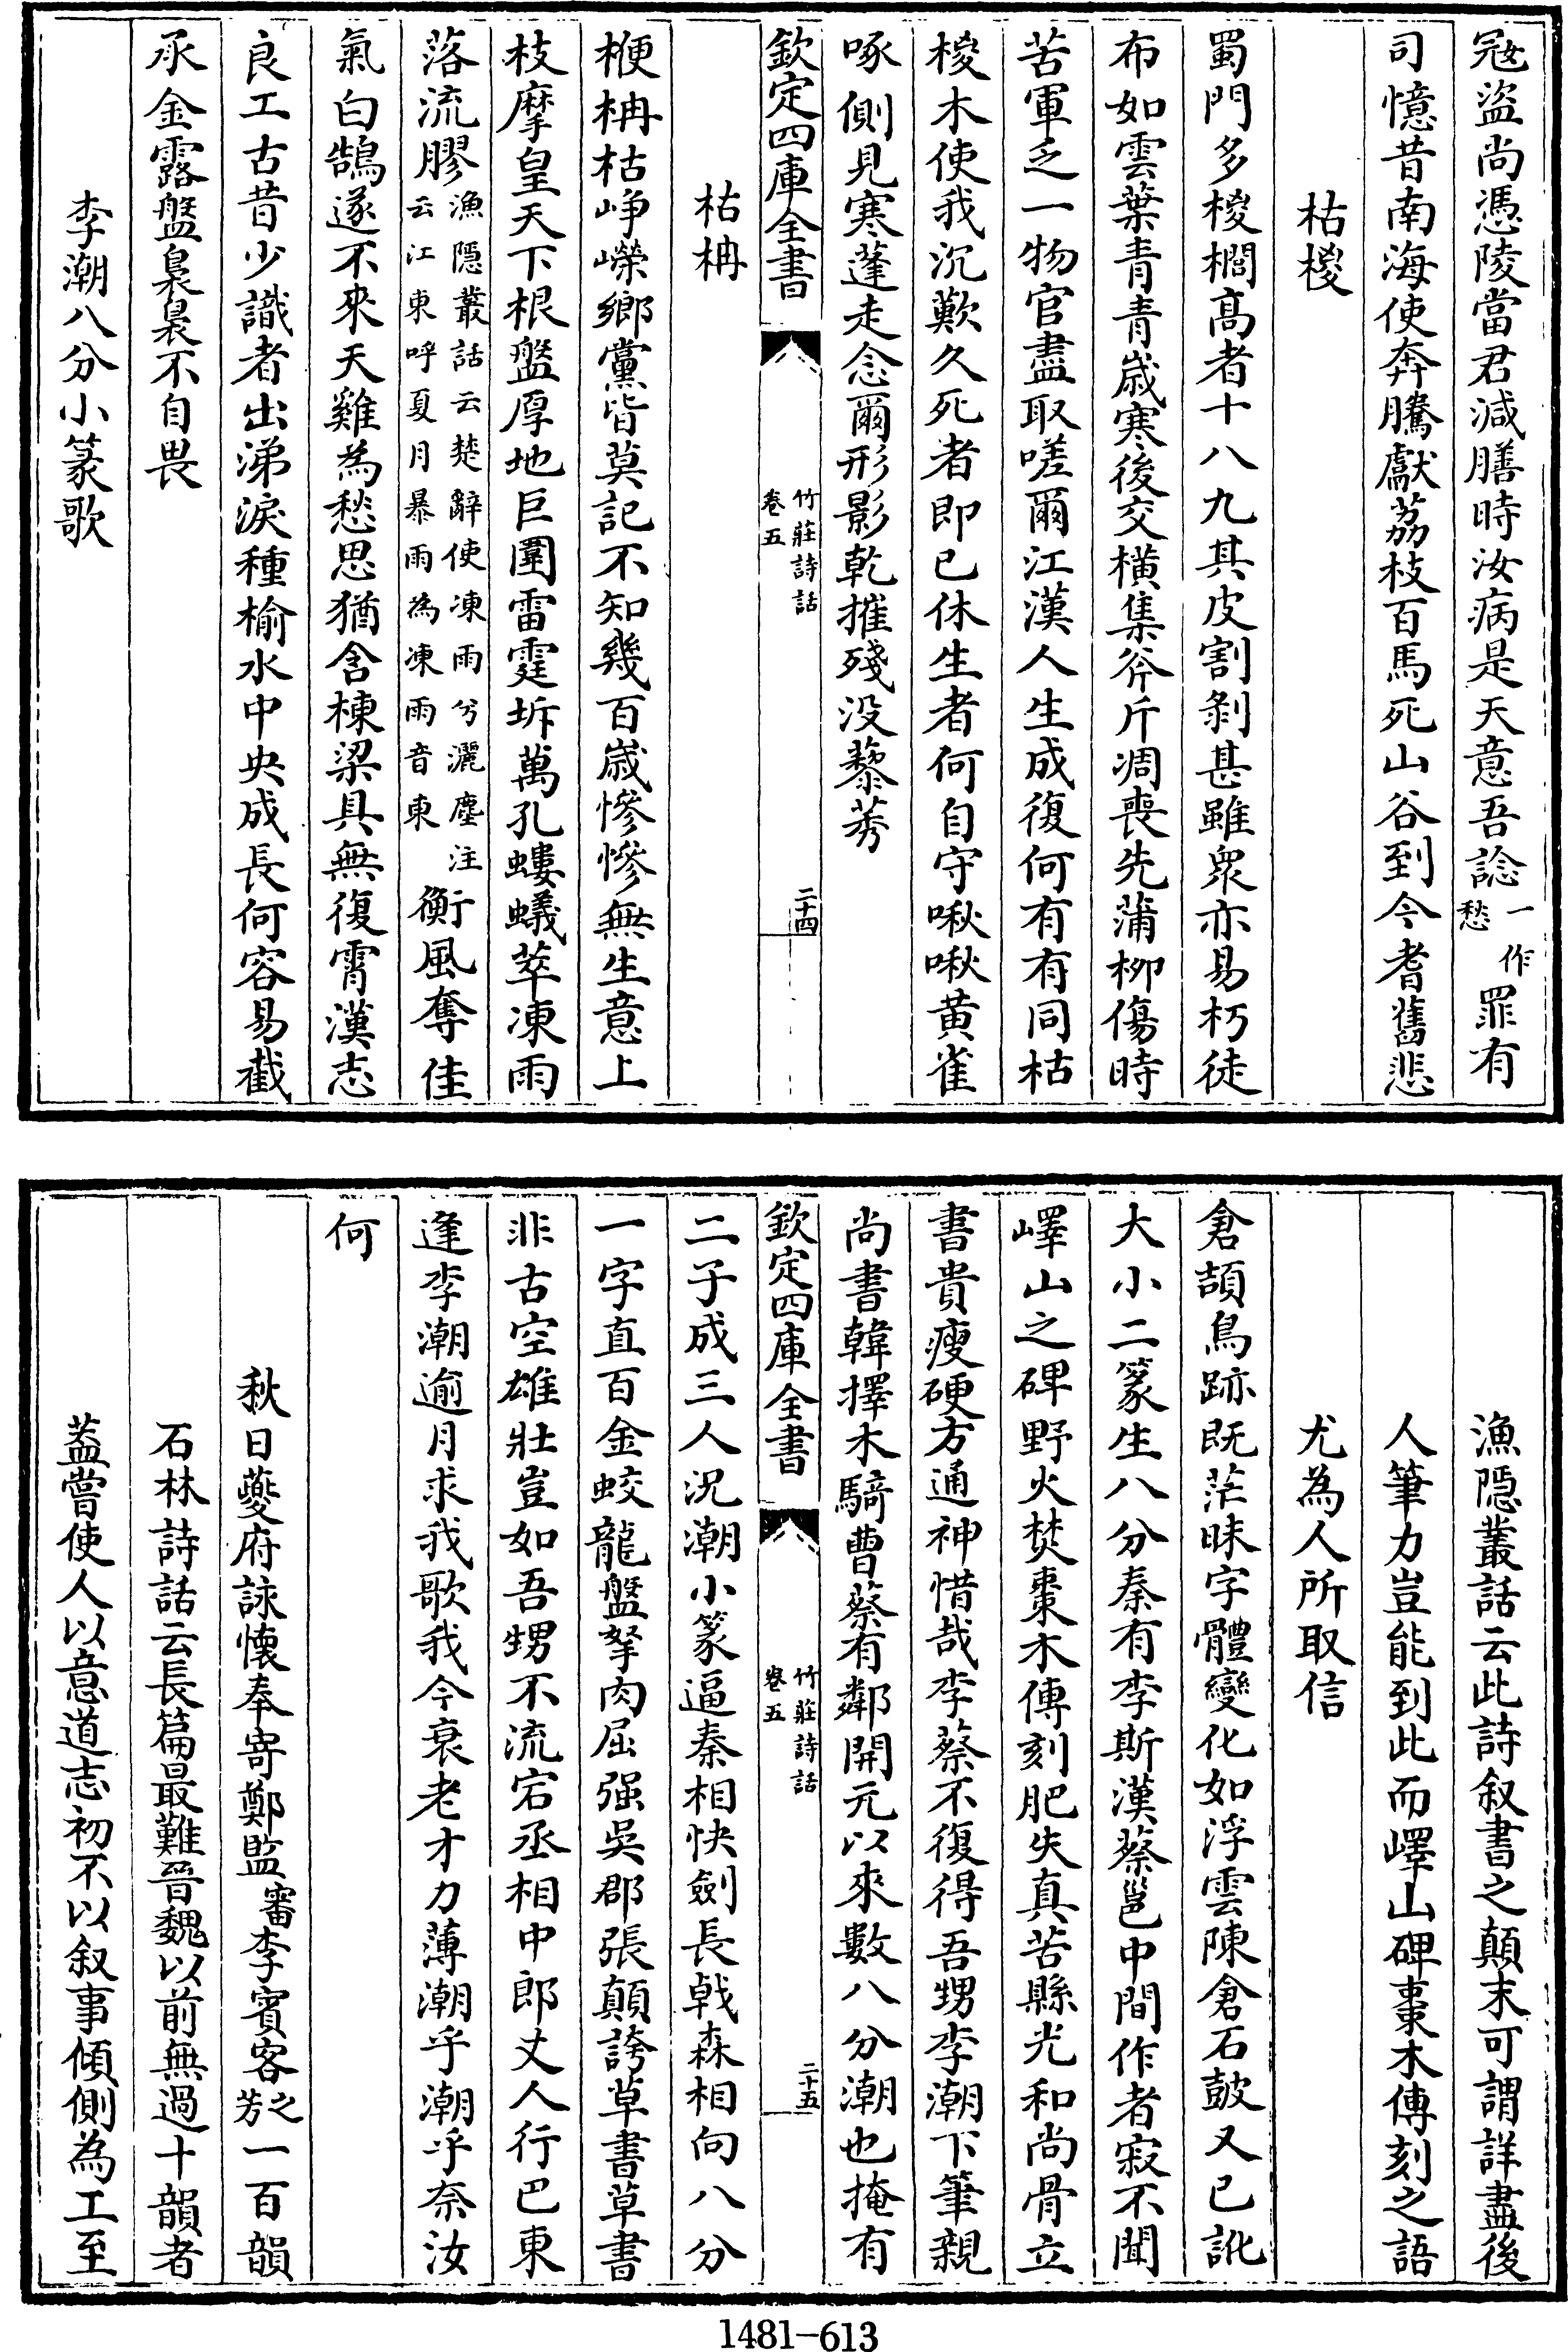 冦盗尚憑陵當君減膳時汝病是天意吾諗一作愁罪有
司憶昔南海使奔騰獻荔枝百馬死山谷到今耆舊悲
枯椶
蜀門多椶櫚髙者十八九其皮割剝甚雖衆亦易朽徒
布如雲葉青青歲寒後交横集斧斤凋喪先蒲柳傷時
苦軍乏一物官盡取嗟爾江漢人生成復何有有同枯
椶木使我沉歎久死者即已休生者何自守啾啾黄雀
啄側見寒蓬走念爾形影乾摧殘没藜莠
欽定四庫全書
竹莊詩話
卷五
二十四
枯柟
楩柟枯崢嶸鄉黨皆莫記不知幾百歲慘慘無生意上
枝摩皇天下根盤厚地巨圍雷霆坼萬孔螻蟻萃凍雨
落流膠漁隱叢話云楚辭使凍雨兮灑塵注云江東呼夏月暴雨為凍雨音東衝風奪佳
氣白鵠遂不來天雞為愁思猶含棟梁具無復霄漢志
良工古昔少識者出涕淚種榆水中央成長何容易截
承金露盤裊裊不自畏
李潮八分小篆歌
漁隱叢話云此詩叙書之顛末可謂詳盡後
人筆力豈能到此而嶧山碑棗木傳刻之語
尤為人所取信
倉頡鳥跡既茫昧字體變化如浮雲陳倉石鼓又已訛
大小二篆生八分秦有李斯漢蔡邕中間作者寂不聞
嶧山之碑野火焚棗木傳刻肥失真苦縣光和尚骨立
書貴瘦硬方通神惜哉李蔡不復得吾甥李潮下筆親
尚書韓擇木騎曹蔡有鄰開元以來數八分潮也掩有
欽定四庫全書
竹莊詩話
卷五
二十五
二子成三人況潮小篆逼秦相快劍長戟森相向八分
一字直百金蛟龍盤拏肉屈强吳郡張顛誇草書草書
非古空雄壯豈如吾甥不流宕丞相中郎丈人行巴東
逢李潮逾月求我歌我今衰老才力薄潮乎潮乎奈汝
何
秋日夔府詠懷奉寄鄭監審李賓客之芳一百韻
石林詩話云長篇最難晉魏以前無過十韻者
葢嘗使人以意道志初不以叙事傾側為工至
1481-613